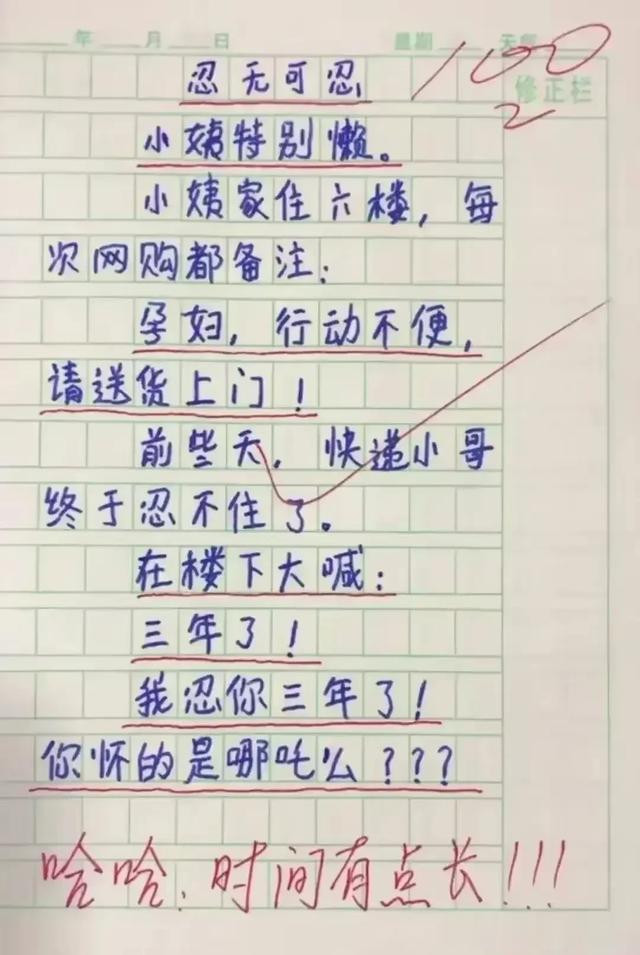 年 月 日 星期 天气
100
忍无可忍
修正栏
2
小姨特别懒。
小姨家住六楼，每
次网购都备注：
孕妇，行动不便，
请送货上门！
前些天，快递小哥
终于忍不住了。
在楼下大喊：
三年了！
我忍你三年了！
你怀的是哪吒么？？？
哈哈，时间有点长！！！